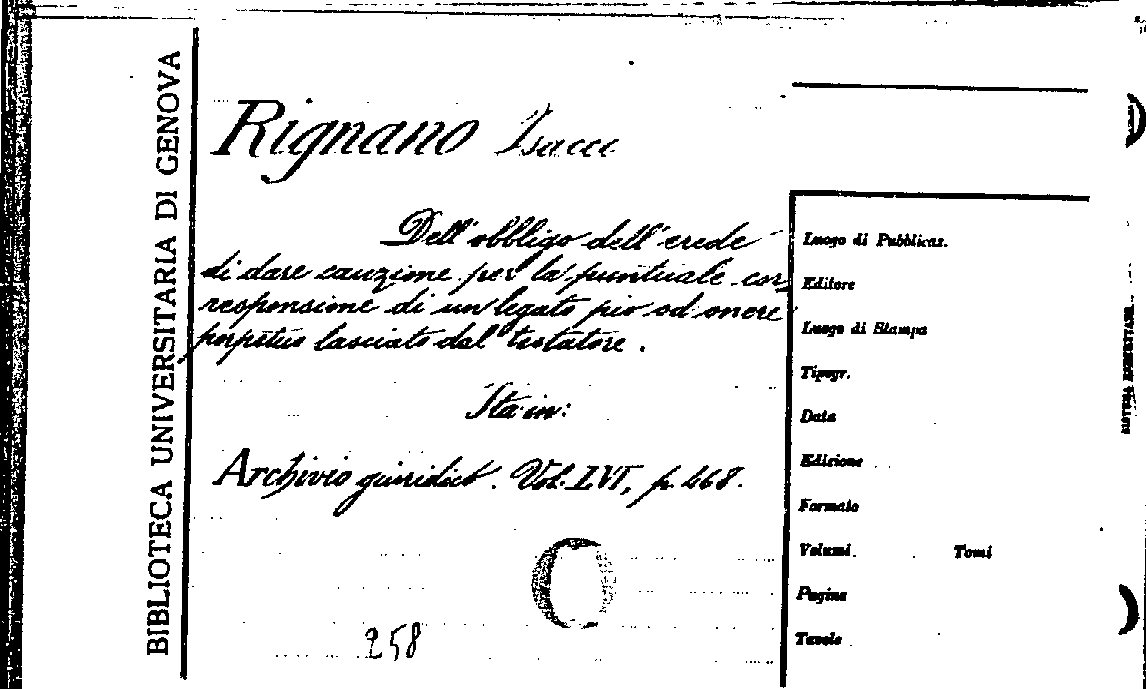 BIBLIOTECA UNIVERSITARIA DI GENOVA
Rignano Isacco
Dell'obbligo dell'erede
di dare cauzione per la puntuale cor
responsione di un legato pio od onere
perpetuo lasciato dal testatore.
Sta in:
Archivio giuridico. Vol. LVI, p. 468.
258
Luogo di Pubblicaz.
Editore
Luogo di Stampa
Tipogr.
Data
Edizione
Formato
Volumi Tomi
Pagine
Tavole
SISTEMA